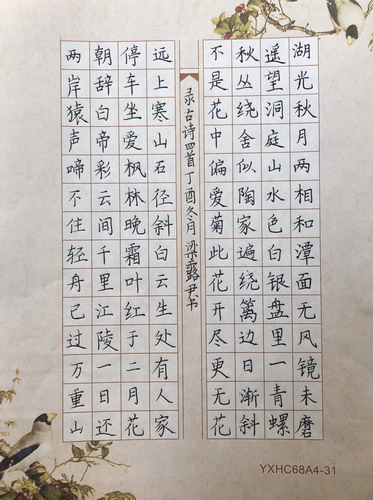 湖光秋月两相和潭面无风镜未磨
遥望洞庭山水色白银盘里一青螺
秋丛绕舍似陶家遍绕篱边日渐斜
不是花中偏爱菊此花开尽更无花
录古诗四首丁酉冬月梁露尹书
远上寒山石径斜白云生处有人家
停车坐爱枫林晚霜叶红于二月花
朝辞白帝彩云间千里江陵一日还
两岸猿声啼不住轻舟已过万重山
YXHC68A4-31